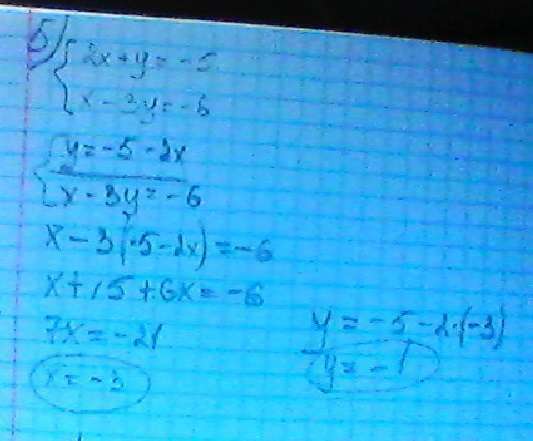 5) { 2x+y=-5
{ x-3y=-6
{ y=-5-2x
{ x-3y=-6
x-3(-5-2x)=-6
x+15+6x=-6
7x=-21
x=-3
y=-5-2·(-3)
y=-1